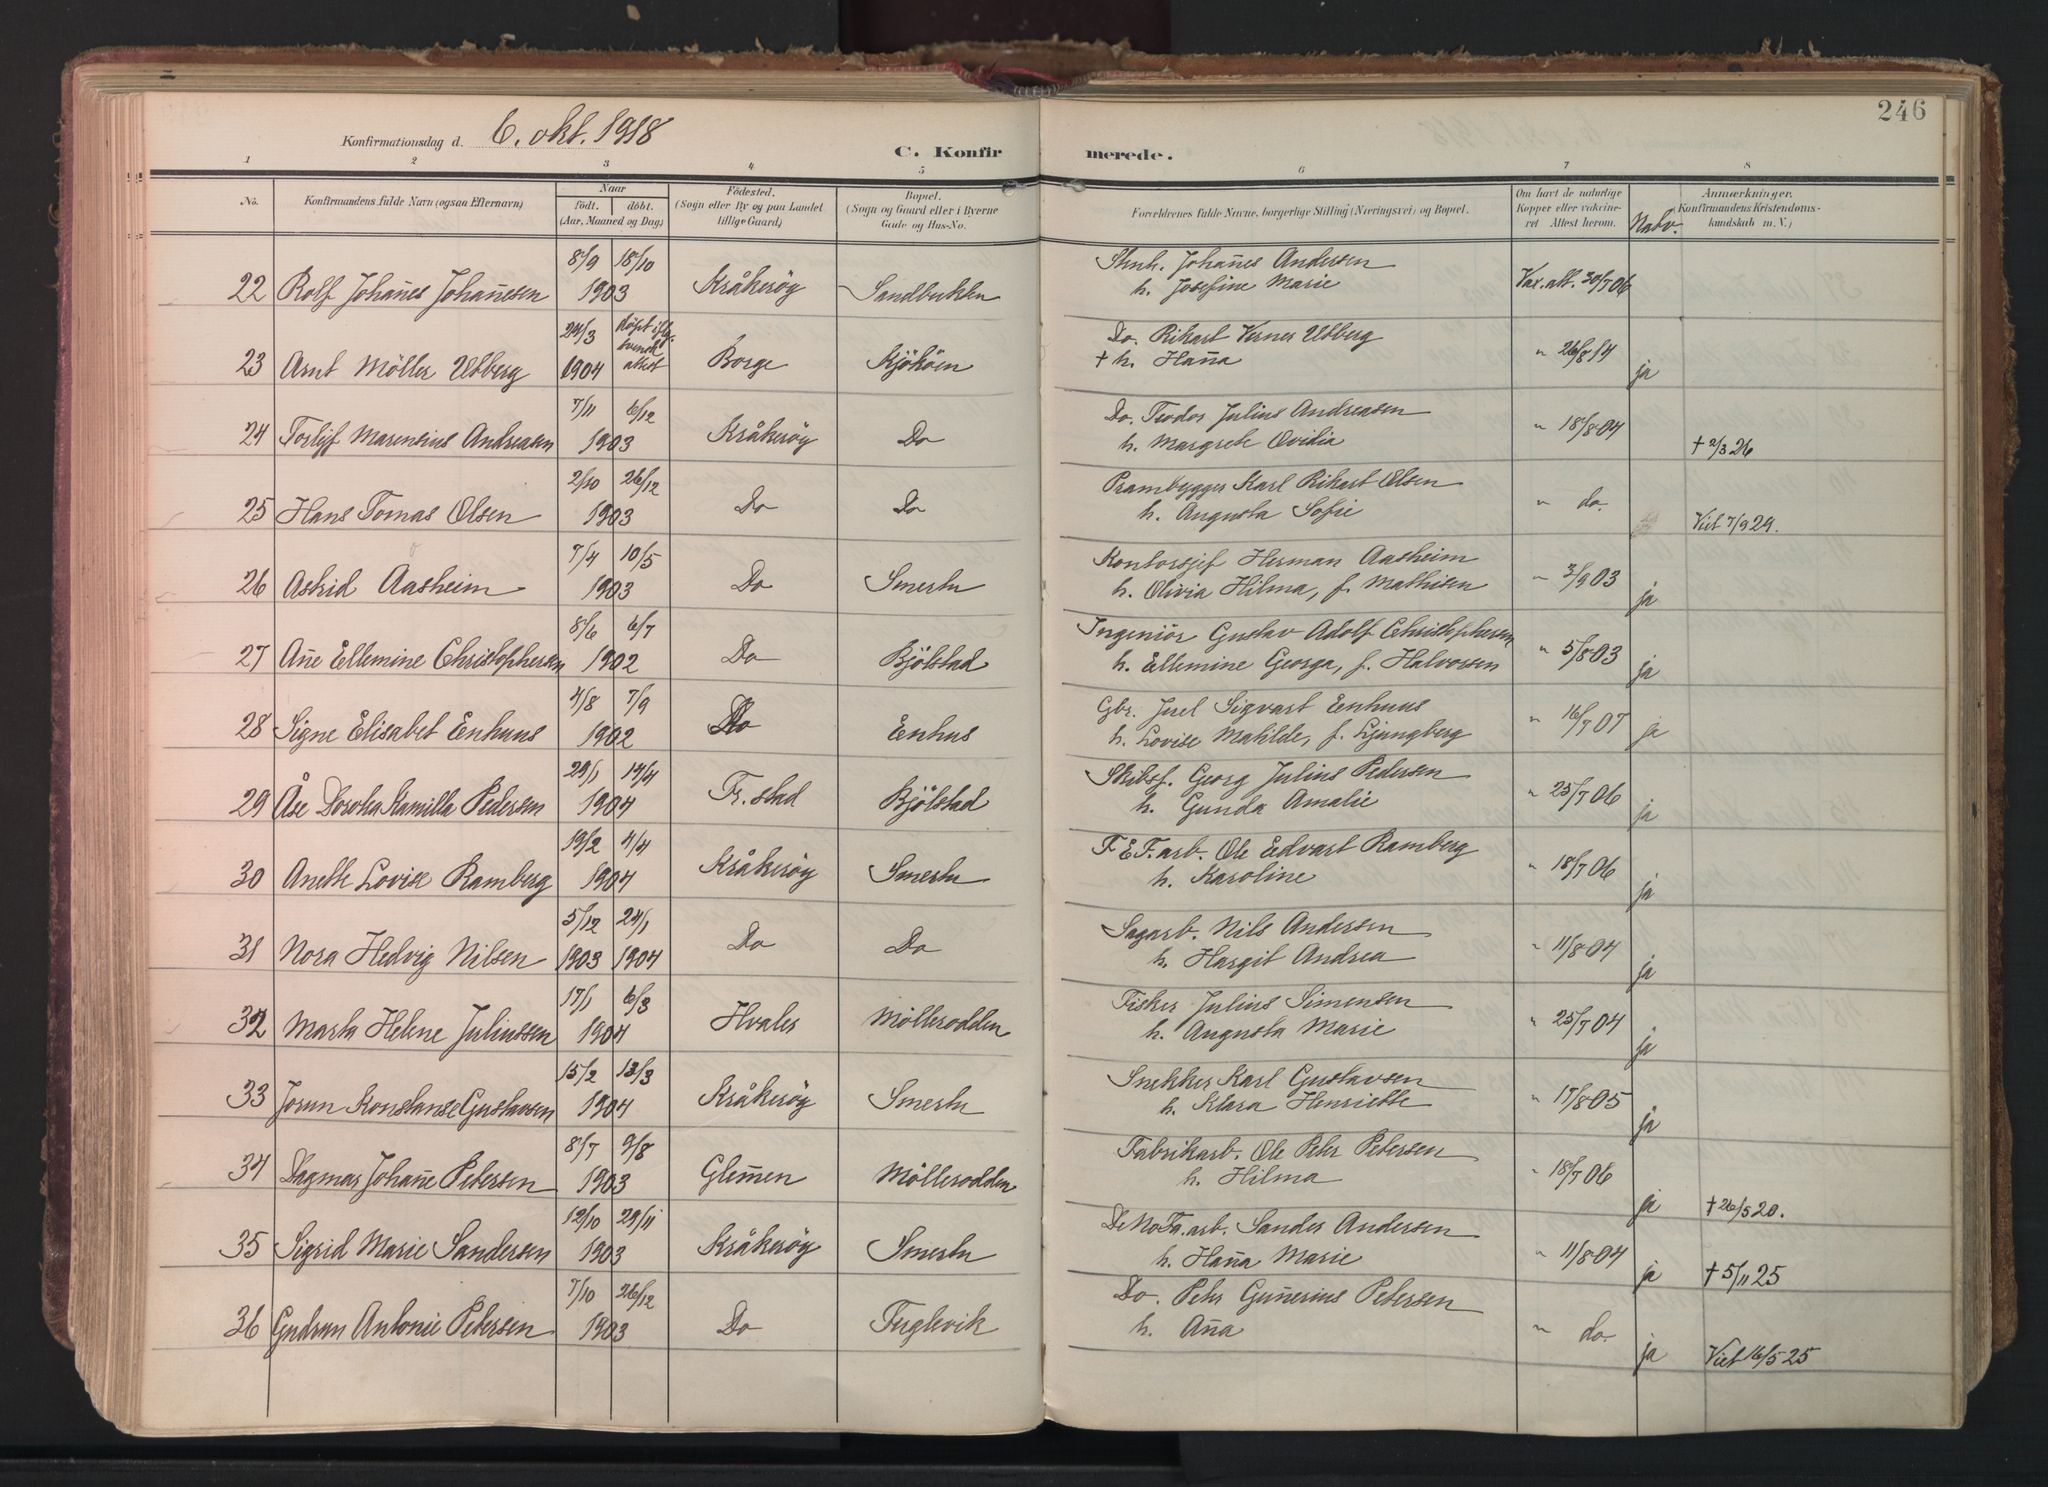 246
Konfirmationsdag d. 6. okt. 1918
C. Konfirmerede.
1 2 3 4 5 6 7 8
No. Konfirmandens fulde Navn (ogsaa Efternavn) Naar födt. döbt. (Aar, Maaned og Dag) Födested. (Sogn eller By og paa Landet tillige Gaard) Bopæl. (Sogn og Gaard eller i Byerne Gade og Hus-No. Forældrenes fulde Navne, borgerlige Stilling (Næringsvei) og Bopæl. Om havt de naturlige Kopper eller vakcineret Attest herom. Nabv. Anmærkninger. Konfirmandens Kristendomskundskab m. V.)
22 Rolf Johan̄es Johan̄esen 8/9 18/10 1903 Kråkeröy Sandbukten Johan̄es Andersen
h. Josefine Marie Vax. att. 30/7 06
23 Arnt Möller Utberg 24/3 1904 döpt iflg. svensk attest Borge Kjököen Do. Rikart Verner Utberg
† h. Han̄a " 26/8 14 ja
24 Torleif Marensius Andreasen 7/11 6/12 1903 Kråkeröy Do Do. Teodor Julius Andreasen
h. Margrete Ovidia " 18/8 04 † 2/3 26
25 Hans Tomas Olsen 2/10 26/12 1903 Do Do Prambygger Karl Rikart Olsen
h. Augusta Sofie " do. Viet 7/9 29.
26 Astrid Aasheim 7/4 10/5 1903 Do Smertu Kontorsjef Herman Aasheim
h. Olivia Hilma, f. Mathisen " 3/9 03 ja
27 An̄e Ellemine Christophersen 8/6 6/7 1902 Do Bjölstad Ingeniör Gustav Adolf Christophersen
h. Ellemine Georga, f. Halvorsen " 5/8 03 ja
28 Signe Elisabet Enhuus 4/8 7/9 1902 Do Enhus Gbr. Juel Sigvart Enhuus
h. Lovise Matilde, f. Ljungberg " 16/7 07 ja
29 Åse Dorotea Kamilla Pedersen 29/1 14/4 1904 Fr. stad Bjölstad Skibsf. Georg Julius Pedersen
h. Gunda Amalie " 25/7 06 ja
30 Anette Lovise Ramberg 19/2 4/4 1904 Kråkeröy Smertu F. E F. arb. Ole Edvart Ramberg
h. Karoline " 18/7 06 ja
31 Nora Hedvig Nilsen 5/12 1903 24/1 1904 Do Do Sagarb. Nils Andersen
h. Hargit Andrea " 11/8 04 ja
32 Marta Helene Juliussen 17/1 6/3 1904 Hvaler Möllerodden Fisker Julius Simensen
h. Augusta Marie " 25/7 04 ja
33 Jorun Konstanse Gustavsen 15/2 13/3 1904 Kråkeröy Smertu Snekker Karl Gustavsen
h. Klara Henriette " 17/8 05 ja
34 Dagmar Johan̄e Petersen 8/7 9/8 1903 Glem̄en Möllerodden Fabrikarb. Ole Peter Petersen
h. Hilma " 18/7 06 ja † 26/5 20.
35 Sigrid Marie Sandersen 12/10 29/11 1903 Kråkeröy Smertu De No Fa. arb. Sander Andersen
h. Han̄a Marie " 11/8 04 ja † 5/11 25
36 Gudrun Antonie Petersen 7/10 26/12 1903 Do Fuglevik Do. Peter Gun̄erius Petersen
h. An̄a " do. ja Viet 16/5 25